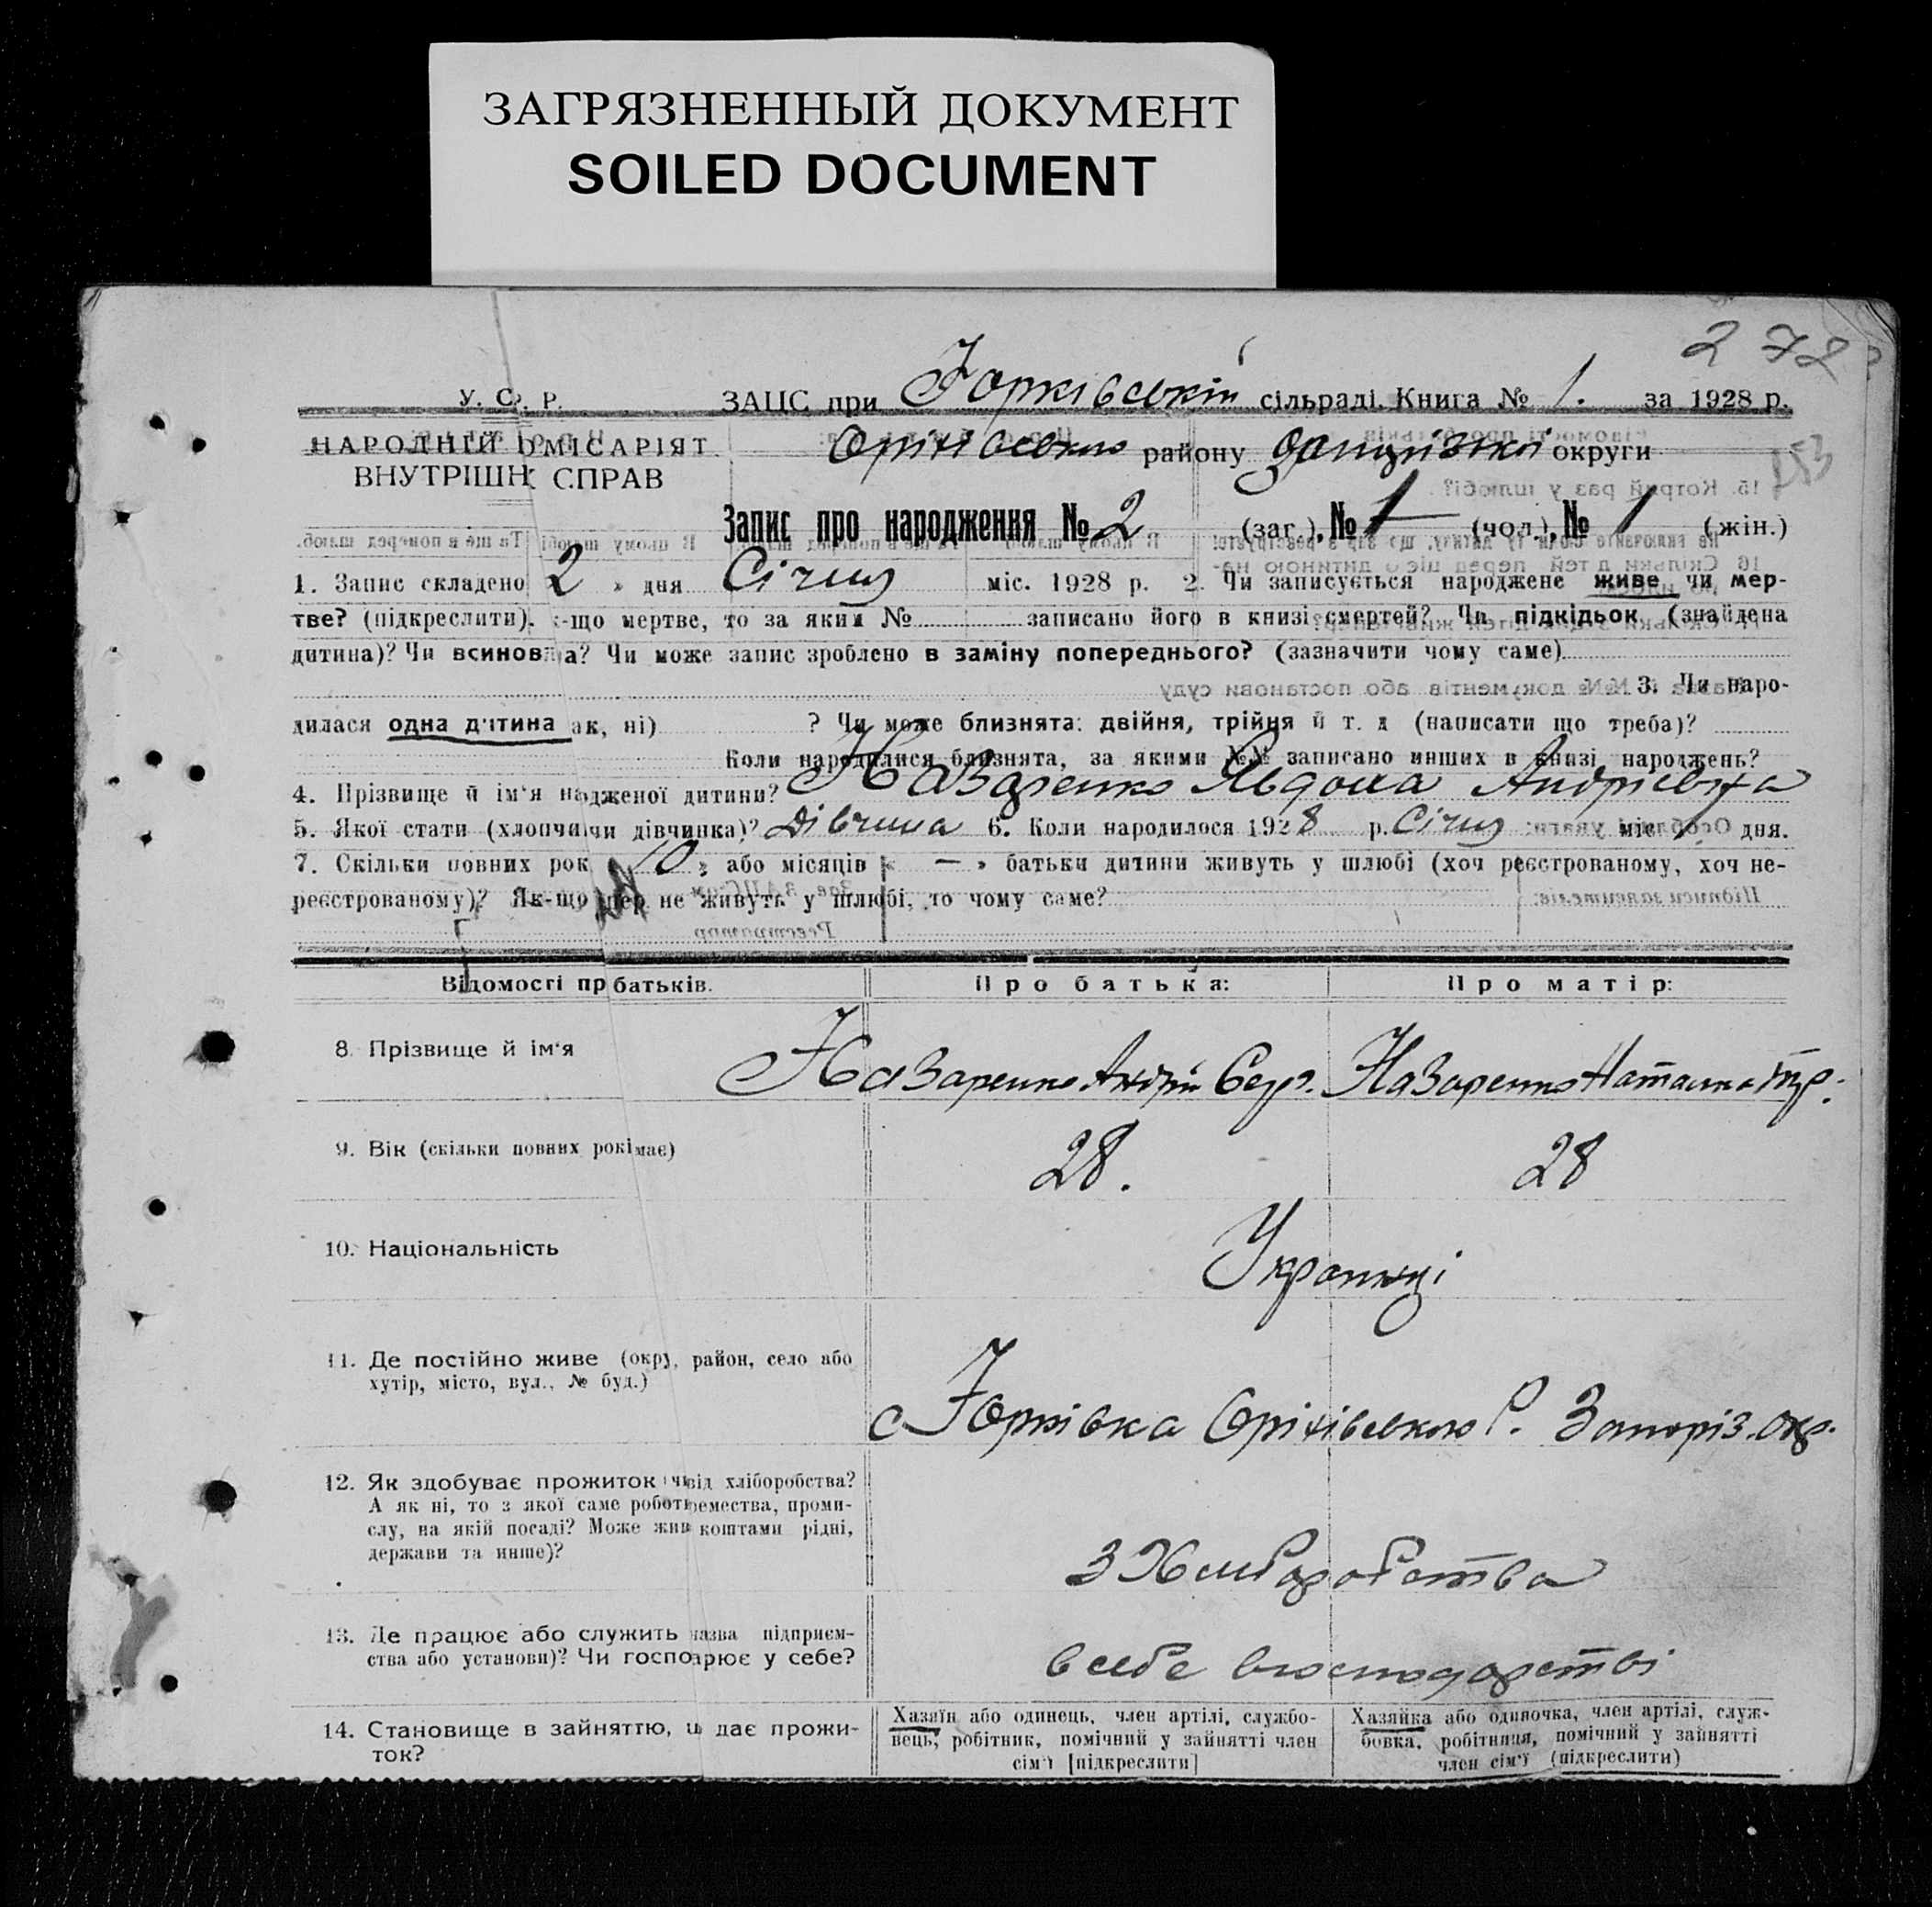 ЗАГРЯЗНЕННЫЙ ДОКУМЕНТ
SOILED DOCUMENT
2 72
У. С. Р.
ЗАЦС при Юрківській сільраді. Книга № 1. за 1928 р.
НАРОДНІЙ ОМІСАРІЯТ
Оріхівського району Запорізької округи
ВНУТРІШН СПРАВ
153
Запис про народження № 2 (заг.), № 1 (чол.), № 1 (жін.)
1. Запис складено 2 » дня Січня міс. 1928 р. 2. Чи записується народжене живе чи мер-
тве? (підкреслити). -що мертве, то за яким № записано його в книзі смертей? Чи підкідьок (знайдена
дитина)? Чи всиновл а? Чи може запис зроблено в заміну попереднього? (зазначити чому саме)
3. Чи наро-
дилася одна дитина ак, ні) ? Чи може близнята: двійня, трійня й т. д (написати що треба)?
Коли народилися близнята, за якими №№ записано инших в книзі народжень?
4. Прізвище й ім'я на дженої дитини? Назаренко Явдоха Андріевна
5. Якої стати (хлопчи чи дівчинка)? Дівчина 6. Коли народилося 1928 р. Січня міс. 1 дня.
7. Скільки повних рок 10 » або місяців « — » батьки дитини живуть у шлюбі (хоч реєстрованому, хоч не-
реєстрованому)? Як-що пер не живуть у шлюбі, то чому саме?
Відомості пр батьків.
Про батька:
Про матір:
8. Прізвище й ім'я
Назаренко Андрій
Назаренко Наталка
9. Вік (скільки повних рокі має)
28.
28
10. Національність
Українці
11. Де постійно живе (окру, район, село або
хутір, місто, вул., № буд.)
с Юрківка Оріхівського Р. Запоріз. окр.
12. Як здобуває прожиток чи від хліборобства?
А як ні, то з якої саме роботи емества, проми-
слу, на якій посаді? Може жив коштами рідні,
держави та инше)?
З Хліборобства
13. Де працює або служить назва підприєм-
ства або установи)? Чи господарює у себе?
в себе в господарстві
14. Становище в зайняттю, щ дає прожи-
ток?
Хазяїн або одинець, член артілі, службо-
вець, робітник, помічний у зайнятті член
сім'ї [підкреслити]
Хазяйка або одиночка, член артілі, служ-
бовка, робітниця, помічний у зайнятті
член сім'ї (підкреслити)